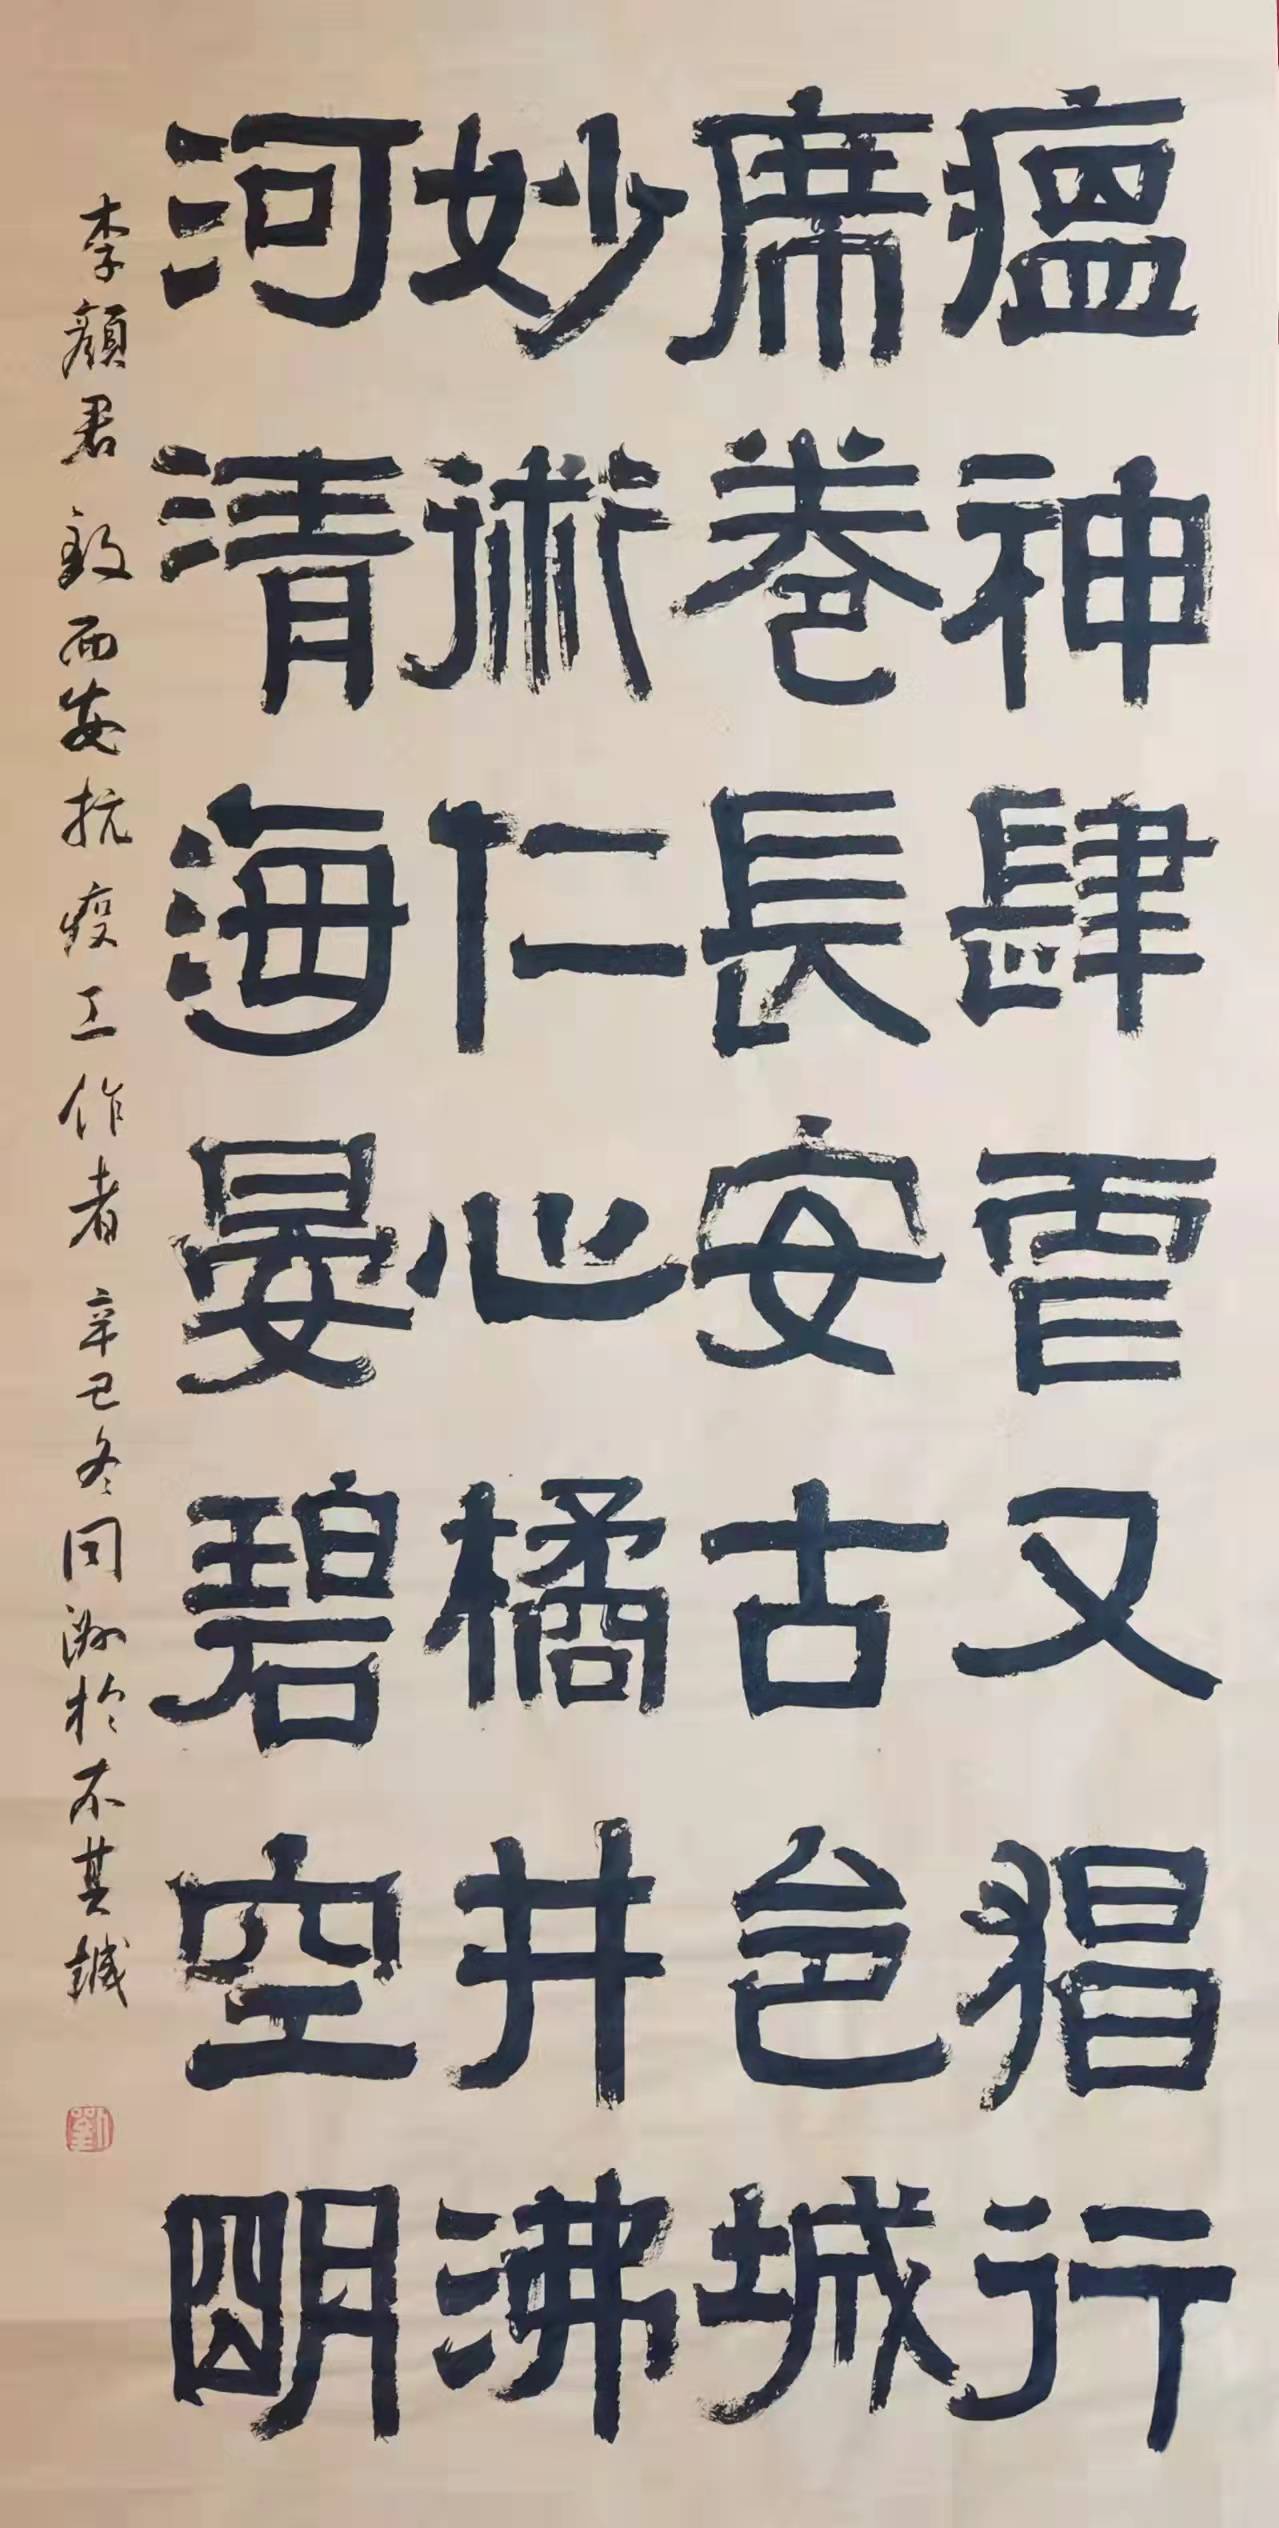 瘟神肆虐又猖行
席卷長安古邑城
妙術仁心橘井沸
河清海晏碧空明
李顏君致西安抗疫工作者 辛丑冬同渊於不其城
劉